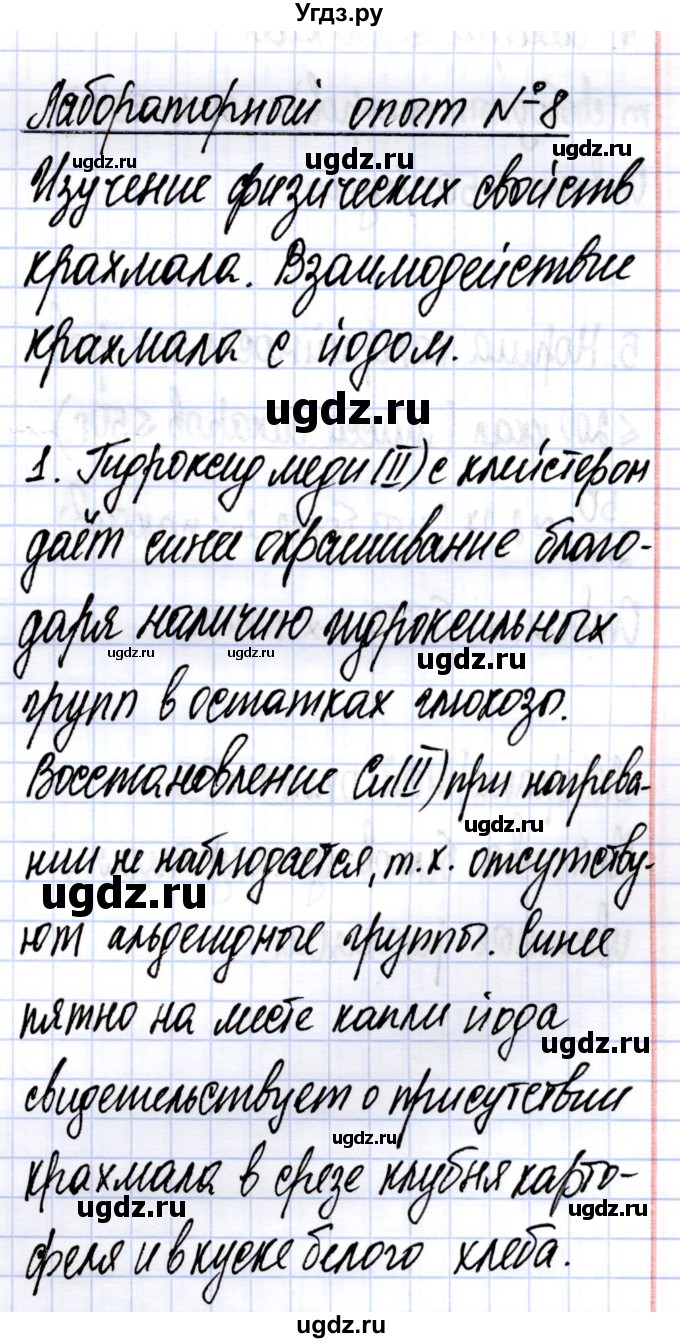 Угдз.ру
Лабораторный опыт №8
ugdz.ru ugdz.ru ugdz.ru
Изучение физических свойств
крахмала. Взаимодействие
крахмала с йодом.
ugdz.ru
1. Гидроксид меди (II) с клейстерон
даёт синее окрашивание благо-
даря наличию гидроксильных
ugdz.ru ugdz.ru ugdz.ru
групп в остатках глюкозы.
Восстановление Cu(II) при нагрева-
ugdz.ru
нии не наблюдается, т.к. отсутству-
ugdz.ru
ют альдегидные группы. Синее
пятно на месте капли йода
ugdz.ru
свидетельствует о присутствии
ugdz.ru
крахмала в срезе клубня карто-
ugdz.ru ugdz.ru
феля и в куске белого хлеба.
ugdz.ru